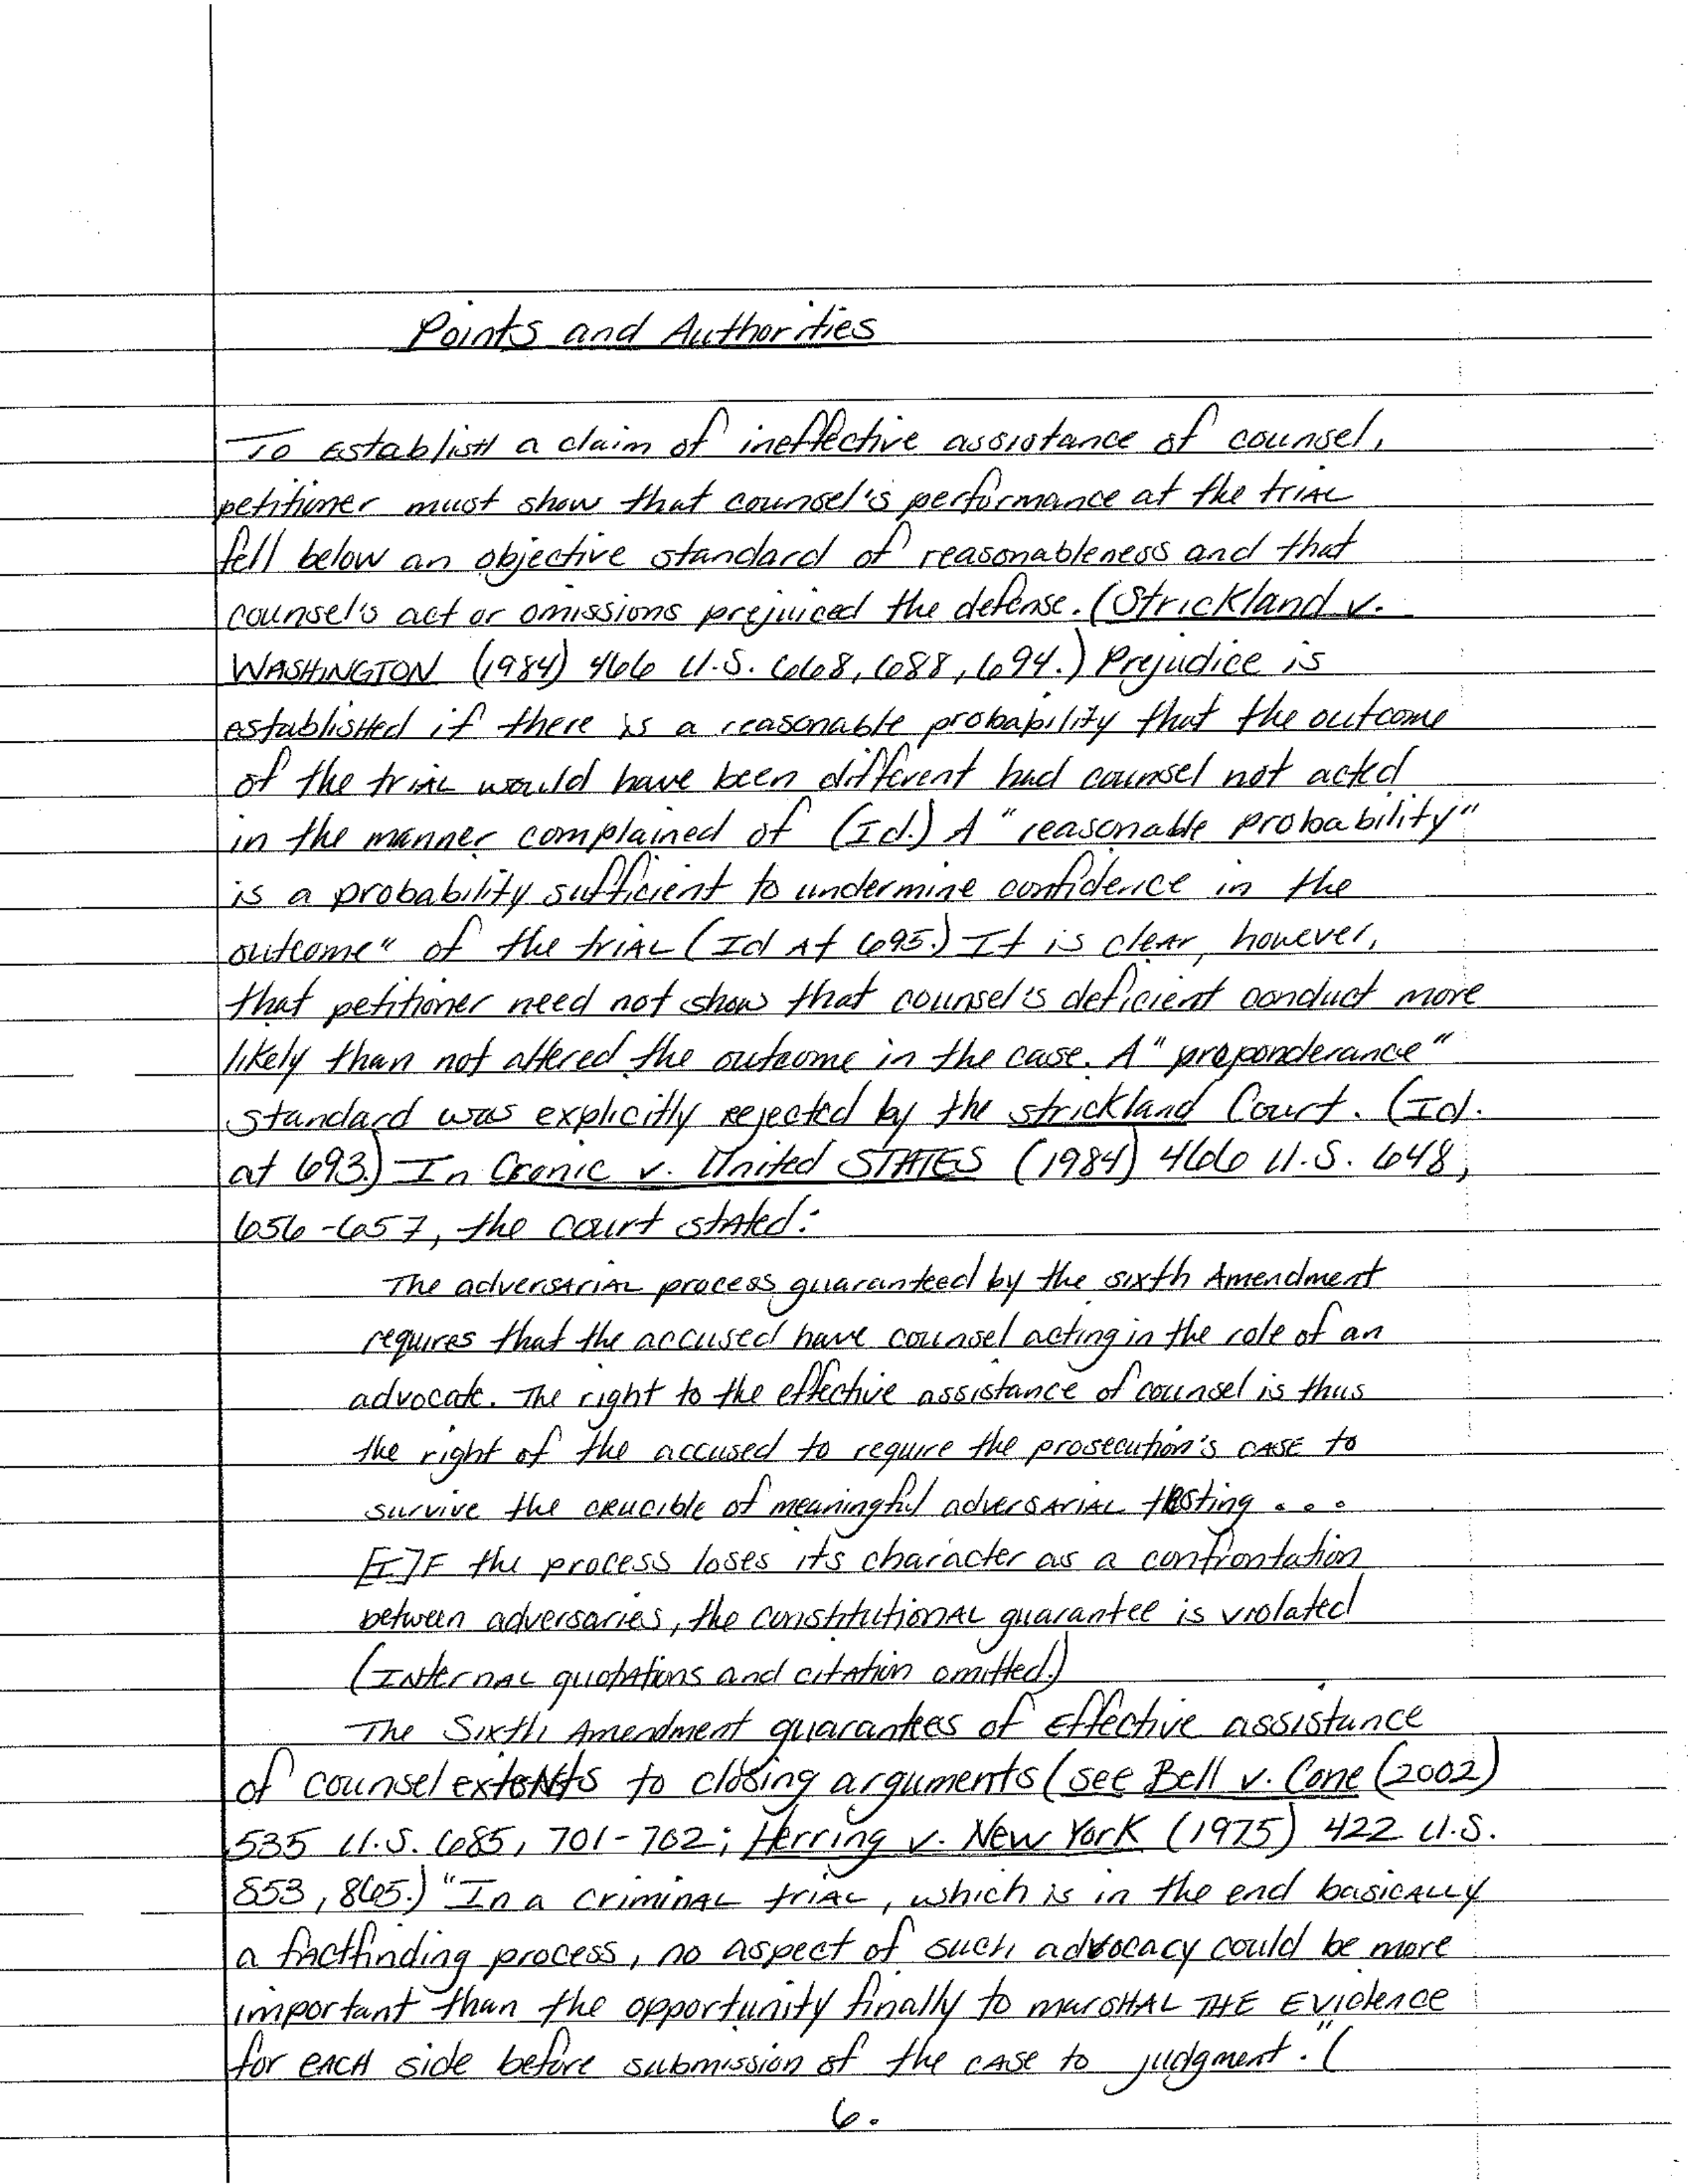 Points and Authorities
To establish a claim of ineffective assistance of counsel,
petitioner must show that counsel's performance at the trial
fell below an objective standard of reasonableness and that
counsel's act or omissions prejuiced the defense. (Strickland v.
WASHINGTON (1984) 466 U.S. 668, 688, 694.) Prejudice is
established if there is a reasonable probability that the outcome
of the trial would have been different had counsel not acted
in the manner complained of (Id.) A "reasonable probability"
is a probability sufficient to undermine confidence in the
outcome" of the trial (Id At 695.) It is clear, however,
that petitioner need not show that counsel's deficient conduct more
likely than not altered the outcome in the case. A "preponderance"
standard was explicitly rejected by the strickland Court. (Id.
at 693.) In Cronic v. United STATES (1984) 466 U.S. 648,
656-657, the court stated:
The adversarial process guaranteed by the sixth Amendment
requires that the accused have counsel acting in the role of an
advocate. The right to the effective assistance of counsel is thus
the right of the accused to require the prosecution's case to
survive the crucible of meaningful adversarial testing . . .
[I]F the process loses its character as a confrontation
between adversaries, the constitutional guarantee is violated
(Internal quotations and citation omitted.)
The Sixth Amendment guarantees of Effective assistance
of counsel extents to closing arguments (see Bell v. Cone (2002)
535 U.S. 685, 701-702; Herring v. New York (1975) 422 U.S.
853, 865.) "In a criminal trial, which is in the end basically
a factfinding process, no aspect of such advocacy could be more
important than the opportunity finally to marshal THE Evidence
for each side before submission of the case to judgment." (
6.